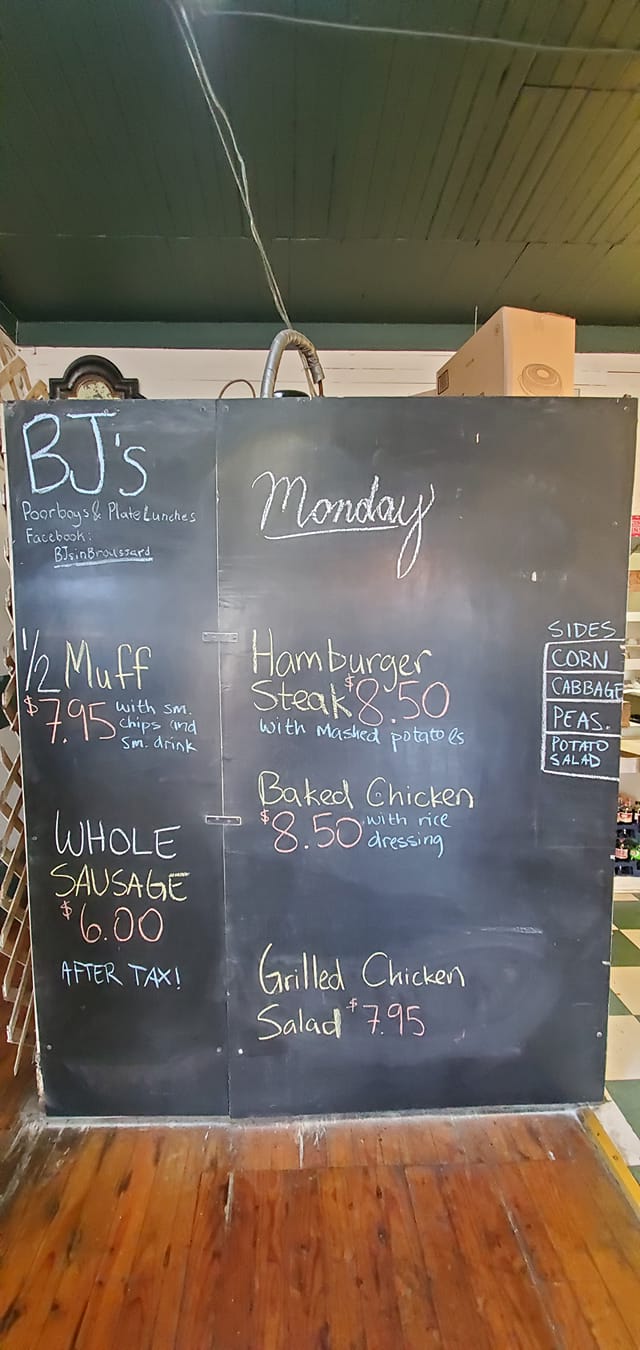 BJ's
Poorboys & Plate Lunches
Facebook:
BJsinBroussard
Monday
1/2 Muff
$7.95 with sm.
chips and
sm. drink
WHOLE
SAUSAGE
$6.00
AFTER TAX!
Hamburger
Steak $8.50
with Mashed potatoes
Baked Chicken
$8.50 with rice
dressing
Grilled Chicken
Salad $7.95
SIDES
CORN
CABBAGE
PEAS.
POTATO
SALAD